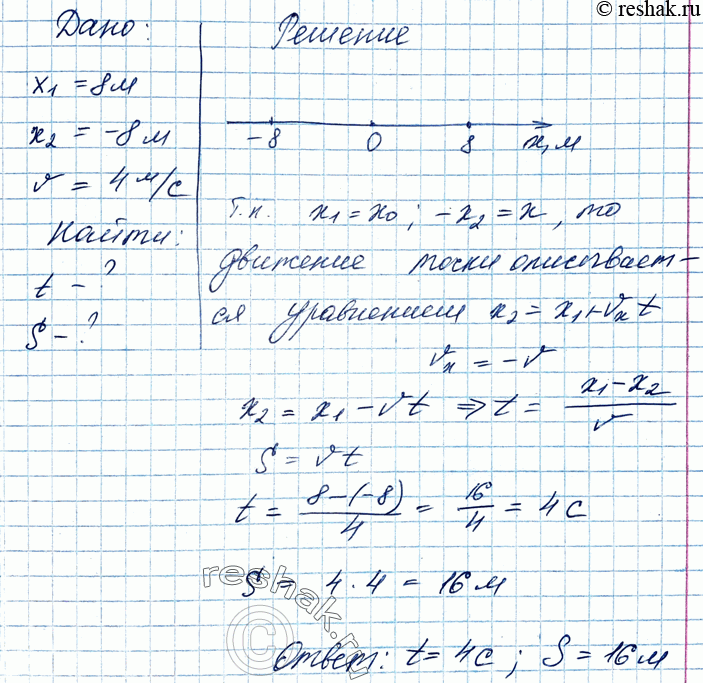 © reshak.ru
Дано:
x₁ = 8м
x₂ = -8м
v = 4 м/с
Найти:
t - ?
S - ?
Решение
-8 0 8 x, м
т.к. x₁ = x₀; -x₂ = x, то
движение точки описывает-
ся уравнением x₂ = x₁ + vₓt
vₓ = -v
x₂ = x₁ - vt ⇒ t = (x₁ - x₂)/v
S = vt
t = (8-(-8))/4 = 16/4 = 4 с
S = 4 · 4 = 16 м
reshak.ru
©
Ответ: t = 4с; S = 16м